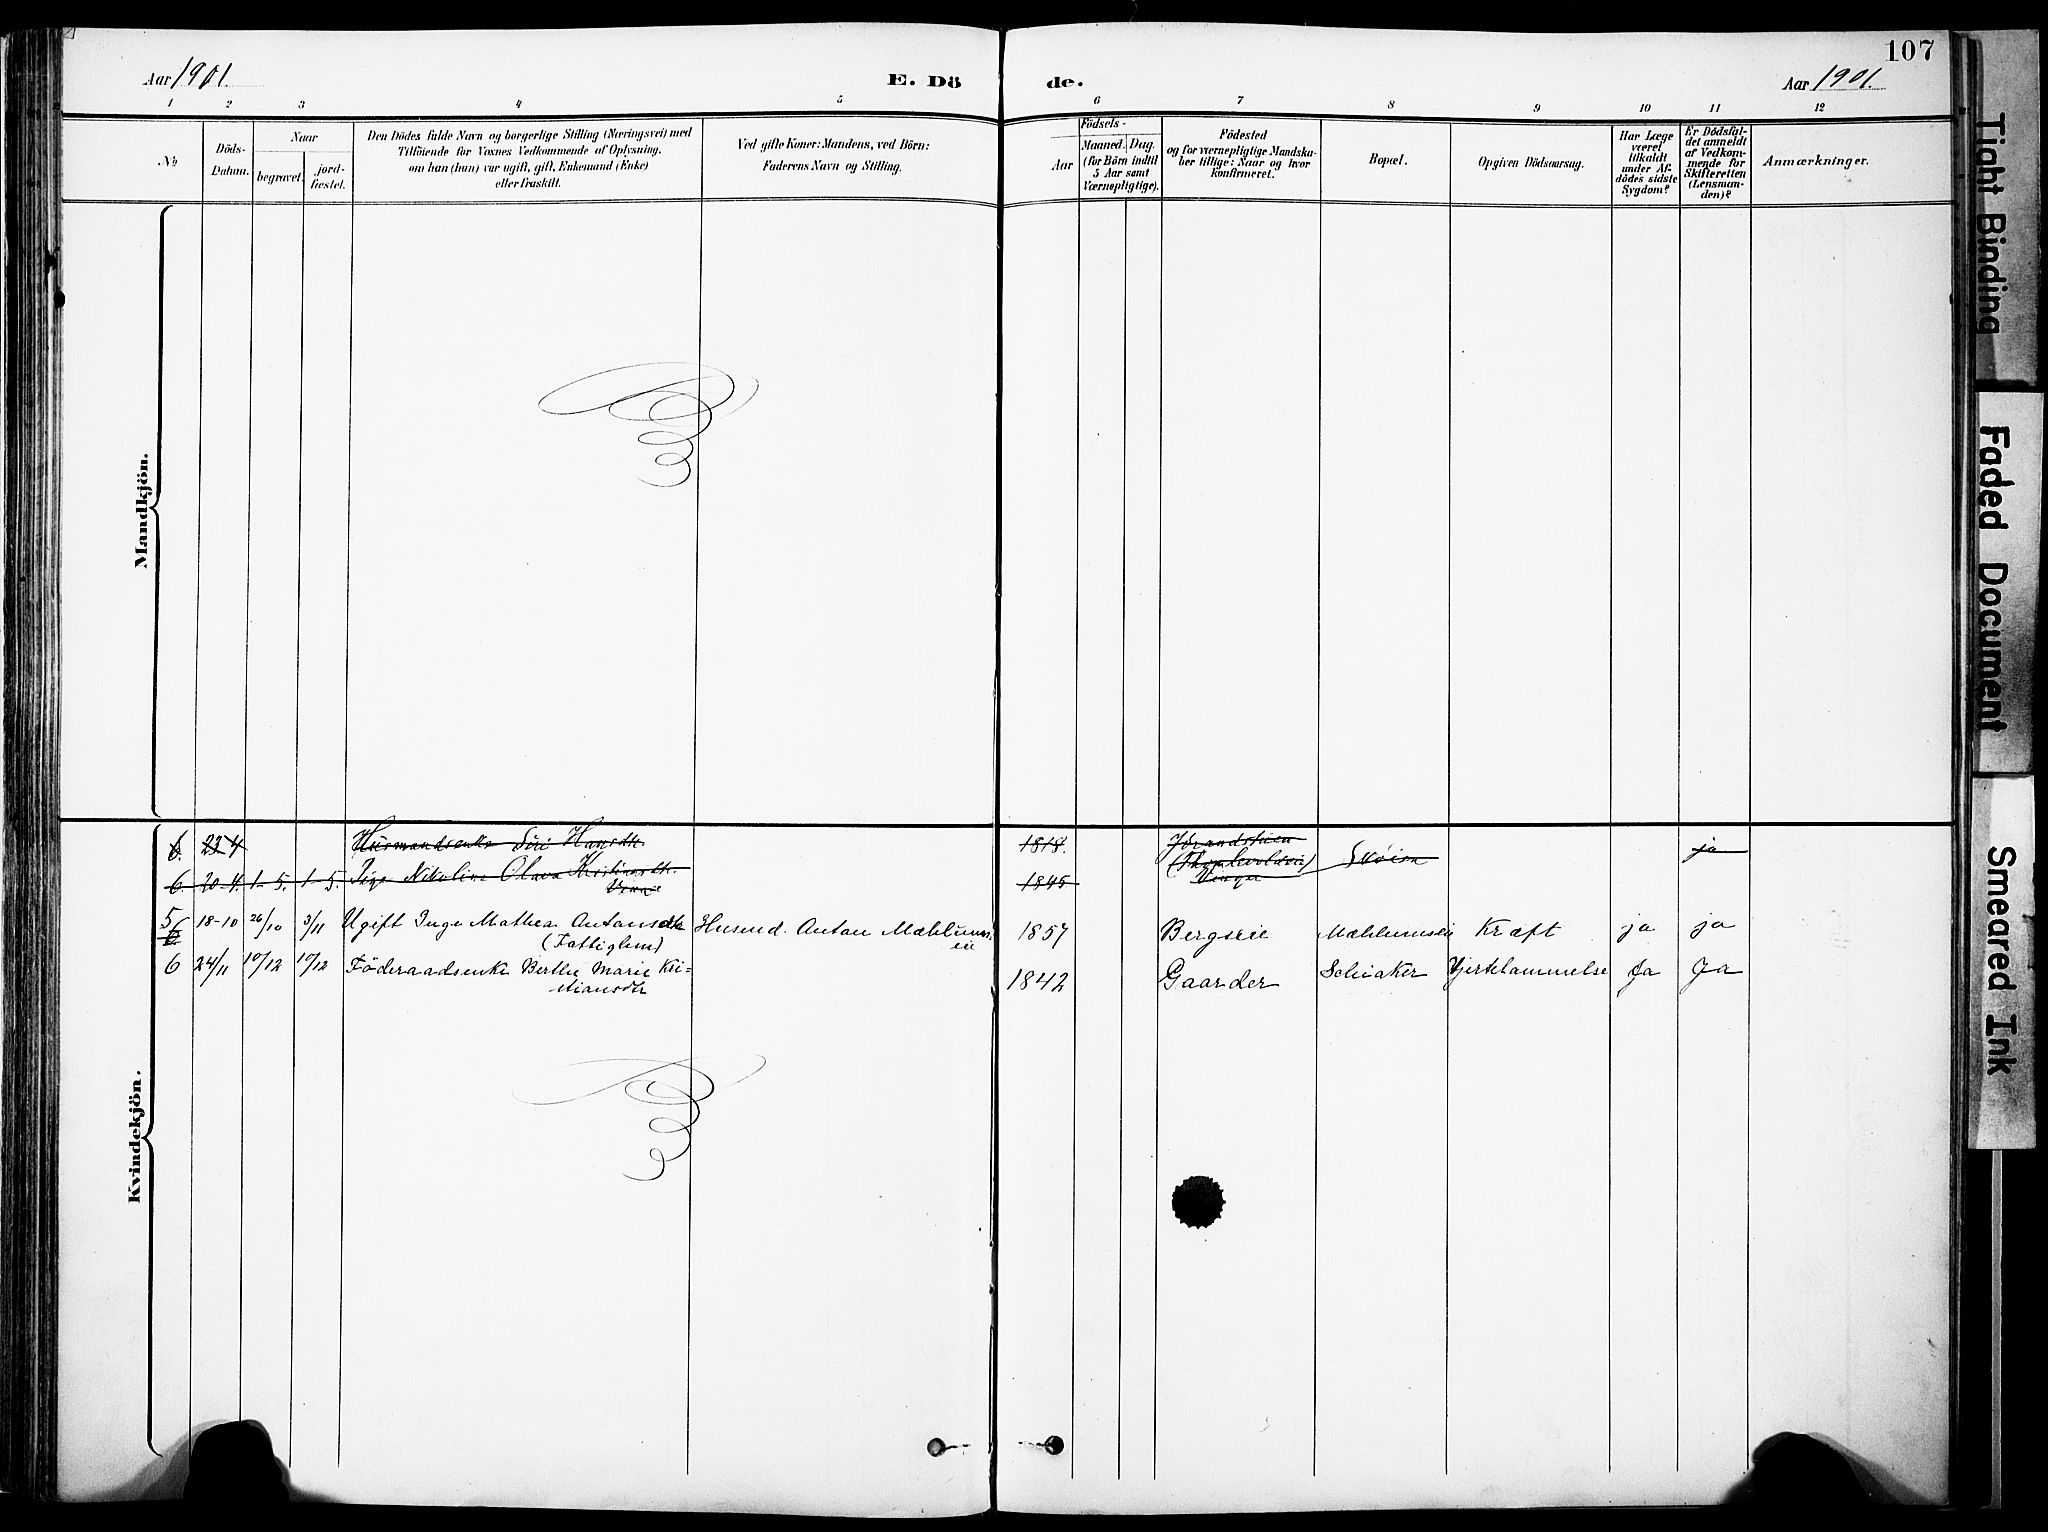 107
Aar 1901.
E. Dö
de.
Aar 1901.
1 2 3 4 5 6 7 8 9 10 11 12
№
Döds-
Datum.
Naar
begravet.
jord-
fæstet.
Den Dödes fulde Navn og borgerlige Stilling (Næringsvei) med
Tilföiende for Voxnes Vedkommende af Oplysning,
om han (hun) var ugift, gift, Enkemand (Enke)
eller fraskilt.
Ved gifte Koner: Mandens, ved Börn:
Faderens Navn og Stilling.
Födsels-
Aar
Maaned. Dag.
(for Börn indtil
5 Aar samt
Værnepligtige).
Födested
og for værnepligtige Mandska-
ber tillige: Naar og hvor
konfirmeret.
Bopæl.
Opgiven Dödsaarsag.
Har Læge
været
tilkaldt
under Af-
dödes sidste
Sygdom?
Er Dödsfal-
det anmeldt
af Vedkom-
mende for
Skifteretten
(Lensman-
den)?
Anmærkninger.
Mandkjön.
Kvindekjön.
6. 22 4 Husmandsenke Siri Hansdtr 1818. ja
6. 20-4. 1-5. 1-5. Pige Nikoline Olava Kristiansdtr. 1845
5 6 18-10 26/10 3/11 Ugift Inge Mathea Antonsdtr Husmd. Anton Mæhlums- 1857 Bergseie Mæhlumseie Kræft ja ja
(Fattiglem) eie
6 24/11 10/12 10/12 Föderaadsenke Berthe Marie Kri- 1842 Gaarder Schiaker Hjertelammelse Ja Ja
stiansdtr
Tight Binding
Faded Document
Smeared Ink